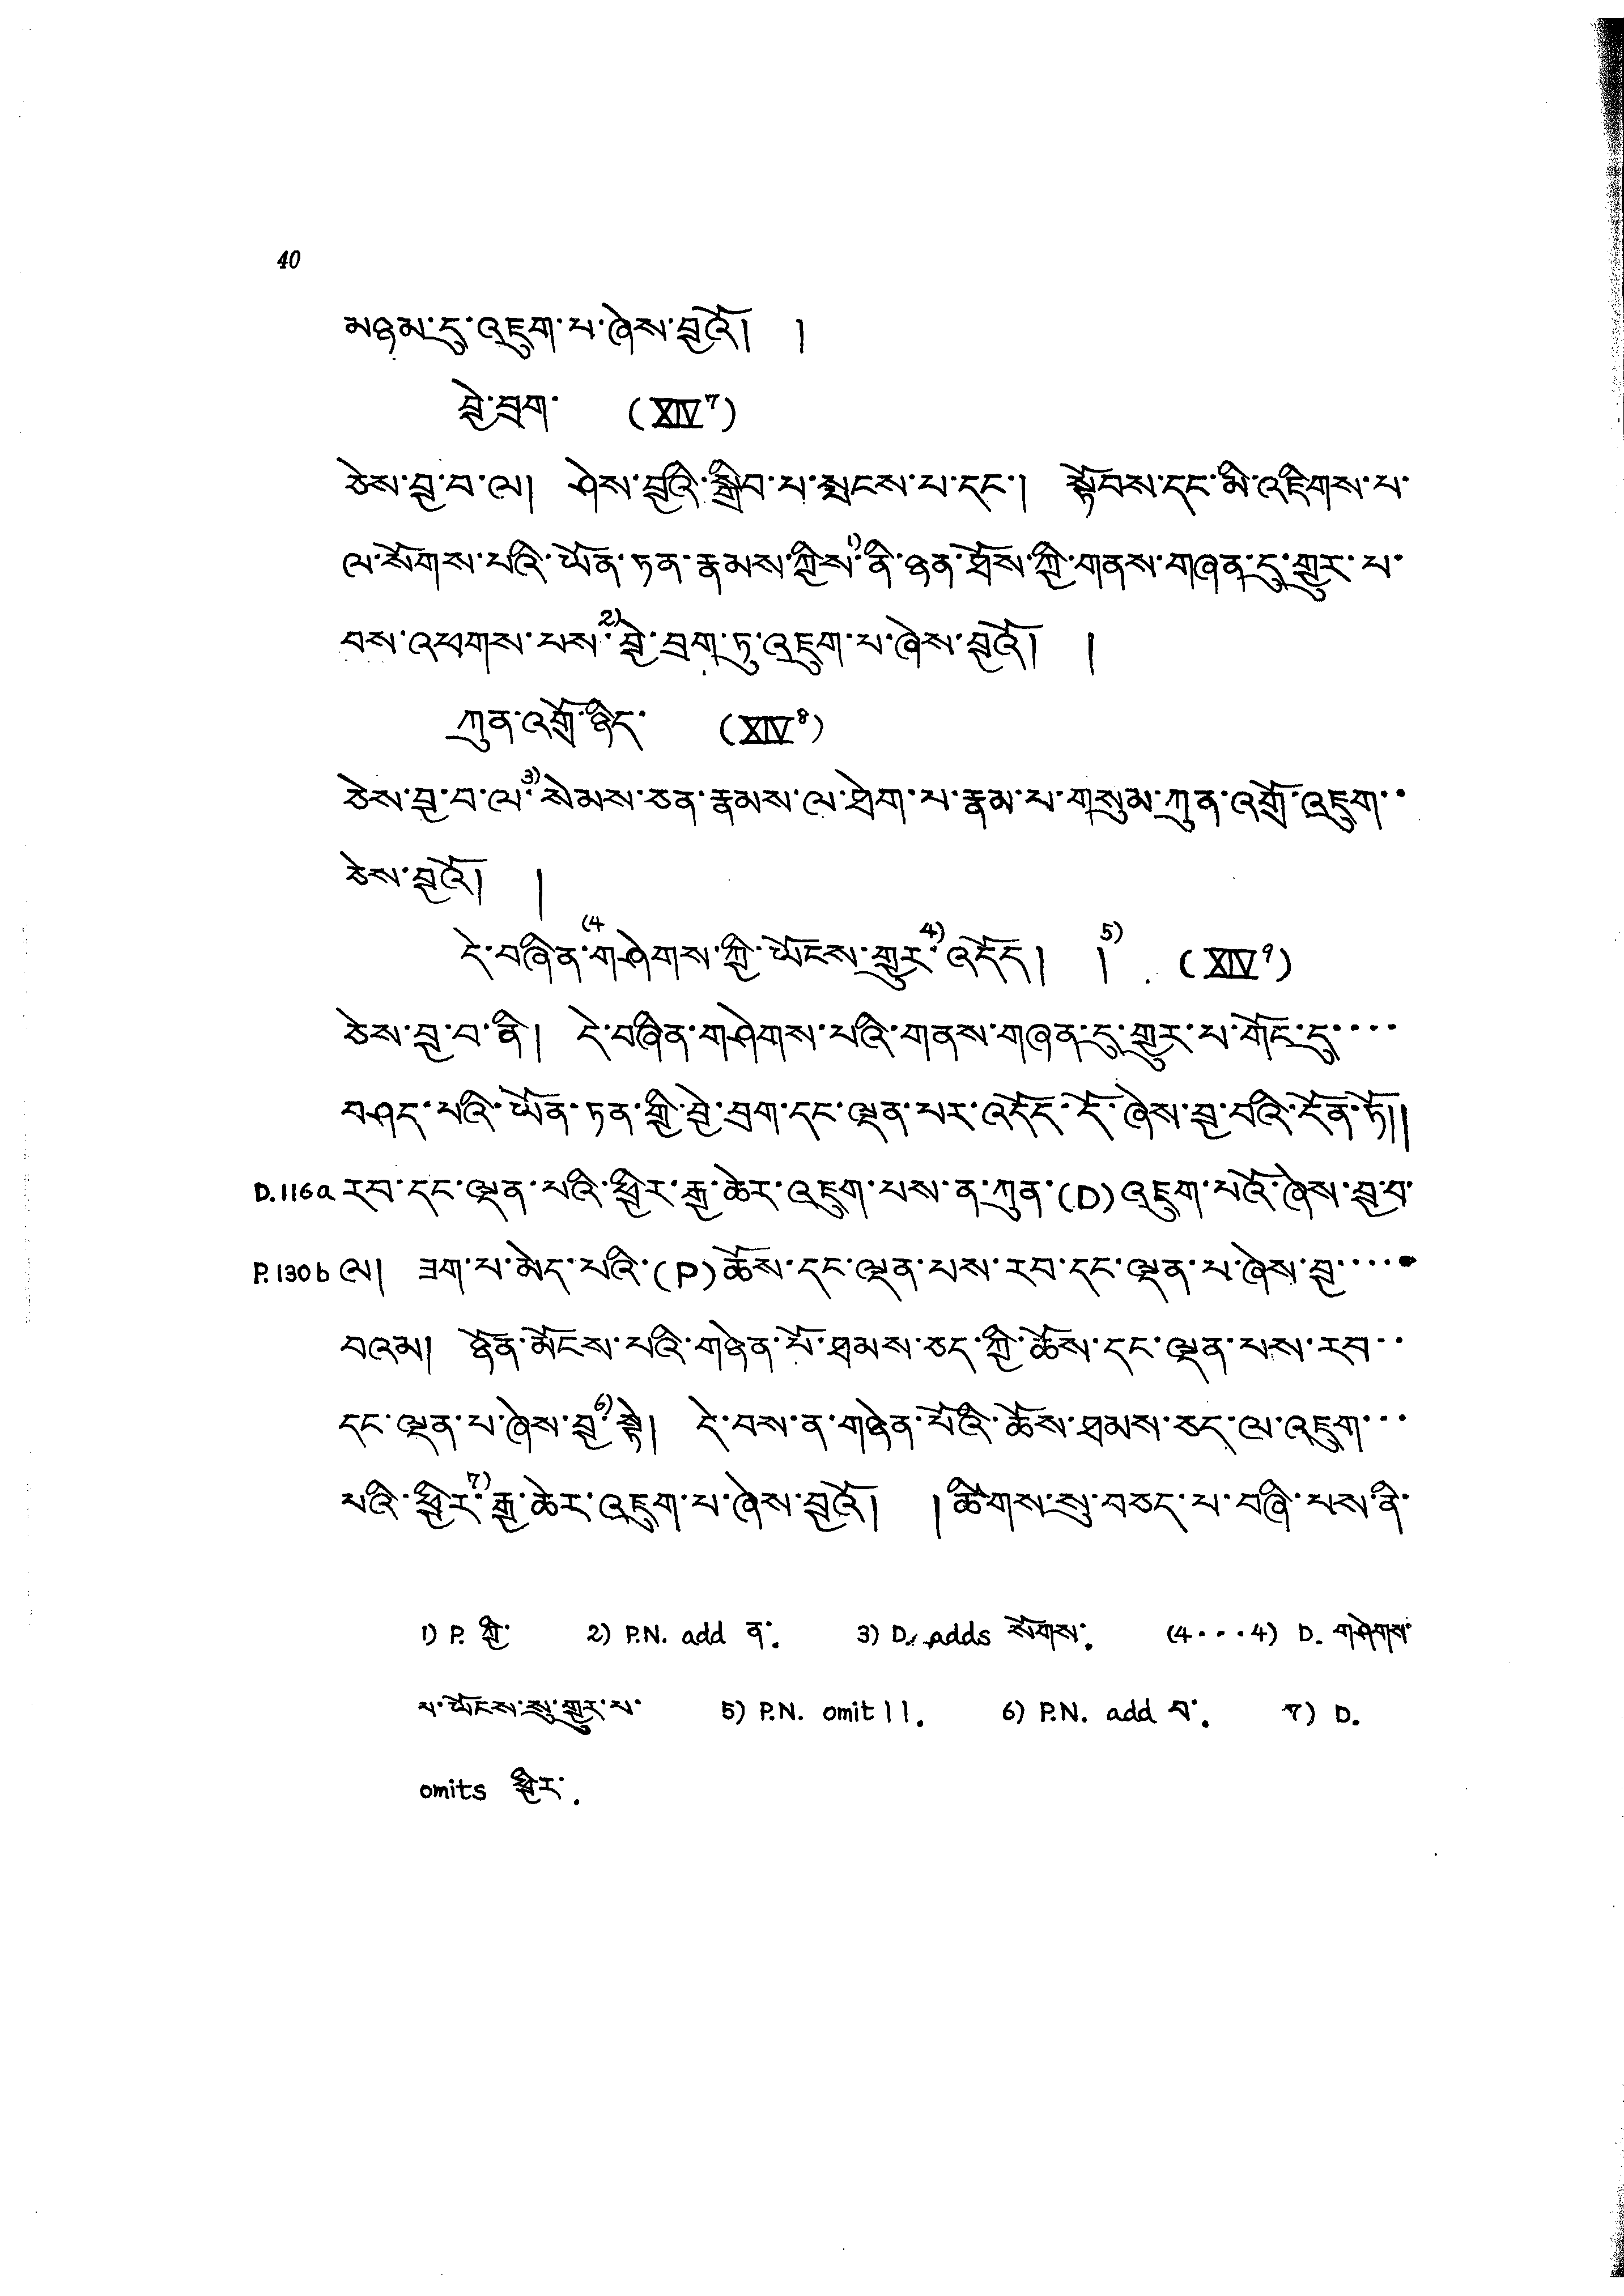 40
མཉམ་དུ་འཇུག་པ་ཞེས་བྱའོ། །
བྱེ་བྲག་ (XIV⁷)
ཅེས་བྱ་བ་ལ། ཤེས་བྱའི་སྒྲིབ་པ་སྤངས་པ་དང་། སྟོབས་དང་མི་འཇིགས་པ་
ལ་སོགས་པའི་ཡོན་ཏན་རྣམས་ཀྱིས་¹⁾ནི་ཉན་ཐོས་ཀྱི་གནས་གཞན་དུ་གྱུར་པ་
བས་འཕགས་པས་²⁾བྱེ་བྲག་ཏུ་འཇུག་པ་ཞེས་བྱའོ། །
ཀུན་འགྲོ་ཉིད་ (XIV⁸)
ཅེས་བྱ་བ་ལ་³⁾སེམས་ཅན་རྣམས་ལ་ཐེག་པ་རྣམ་པ་གསུམ་ཀུན་འགྲོ་འཇུག་་
ཅེས་བྱའོ། །
དེ་བཞིན་⁽⁴གཤེགས་ཀྱི་ཡོངས་གྱུར་⁴⁾འདོད། །⁵⁾ (XIV⁹)
ཅེས་བྱ་བ་ནི། དེ་བཞིན་གཤེགས་པའི་གནས་གཞན་དུ་གྱུར་པ་གོང་དུ་་་་
བཤད་པའི་ཡོན་ཏན་གྱི་བྱེ་བྲག་དང་ལྡན་པར་འདོད་དོ་ཞེས་བྱ་བའི་དོན་ཏོ།།
D.116a རབ་དང་ལྡན་པའི་ཕྱིར་རྒྱ་ཆེར་འཇུག་པས་ན་ཀུན་(D)འཇུག་པའོ་ཞེས་བྱ་བ་
P.130b ལ། ཟག་པ་མེད་པའི་(P)ཆོས་དང་ལྡན་པས་རབ་དང་ལྡན་པ་ཞེས་བྱ་་་་་
བའམ། ཉོན་མོངས་པའི་གཉེན་པོ་ཐམས་ཅད་ཀྱི་ཆོས་དང་ལྡན་པས་རབ་་
དང་ལྡན་པ་ཞེས་བྱ་⁶⁾སྟེ། དེ་བས་ན་གཉེན་པོའི་ཆོས་ཐམས་ཅད་ལ་འཇུག་་་
པའི་ཕྱིར་⁷⁾རྒྱ་ཆེར་འཇུག་པ་ཞེས་བྱའོ། །ཚིགས་སུ་བཅད་པ་བཞི་པས་ནི་
1) P. ཀྱི་ 2) P.N. add ན་. 3) D. adds སོགས་. (4...4) D. གཤེགས་
པ་ཡོངས་སུ་གྱུར་པ་ 5) P.N. omit ། །. 6) P.N. add བ་. 7) D.
omits ཕྱིར་.